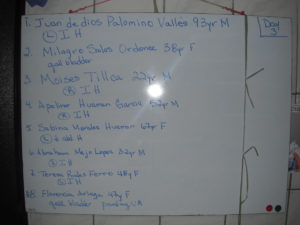 1. Juan de dios Palomino Valles 93yr M
Ⓛ I H
Day 3
2. Milagro Salas Ordonez 38yr F
gall bladder
3. Moises Tilloa 22yr M
Ⓡ I H
4. Apolinar Huaman Garay 52yr M
Ⓡ I H
5. Sabina Morales Huaman 67yr F
abd. H
6. Abraham Mejia Lopez 32yr M
Ⓛ I H
7. Teresa Fierro 48yr F
Ⓛ I H
8. Florencia Arteaga 47y F
gall bladder pending